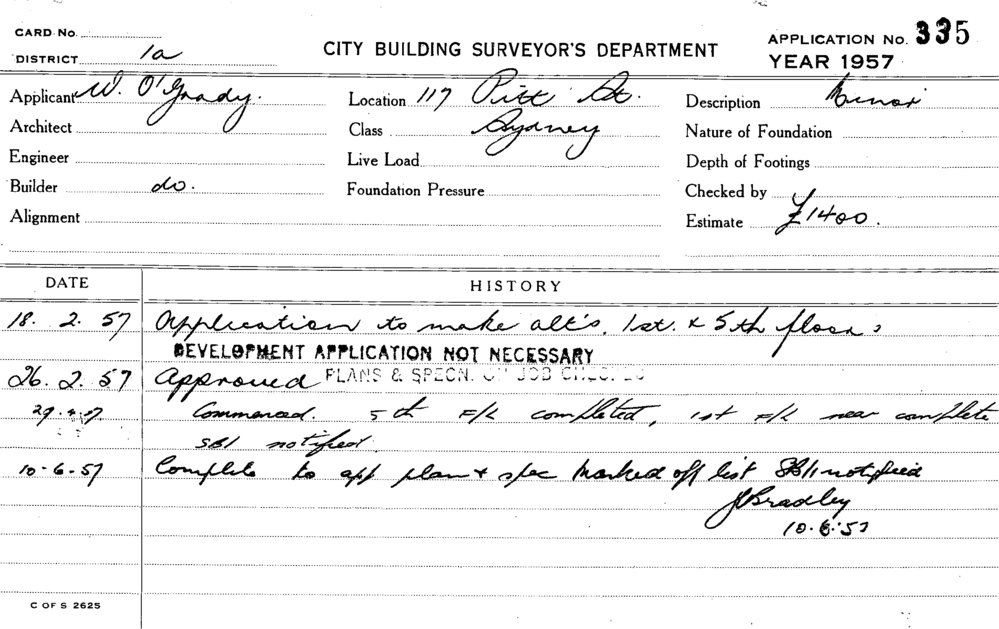 CARD No.
DISTRICT 1a
CITY BUILDING SURVEYOR'S DEPARTMENT
APPLICATION No. 335
YEAR 1957
Applicant W. O'Grady.
Architect
Engineer
Builder do.
Alignment
Location 117 Pitt St.
Class Sydney
Live Load
Foundation Pressure
Description Minor
Nature of Foundation
Depth of Footings
Checked by
Estimate £1400.
DATE HISTORY
18. 2. 57 Application to make alt's. 1st. & 5th floors
DEVELOPMENT APPLICATION NOT NECESSARY
26. 2. 57 Approved PLANS & SPECN. ON JOB
Commenced. 5th F/L completed, 1st F/L near complete
SBI notified.
10-6-57 Complete to app plan & spec Marked off list SBI notified
J Bradley
10.6.57
C OF S 2625